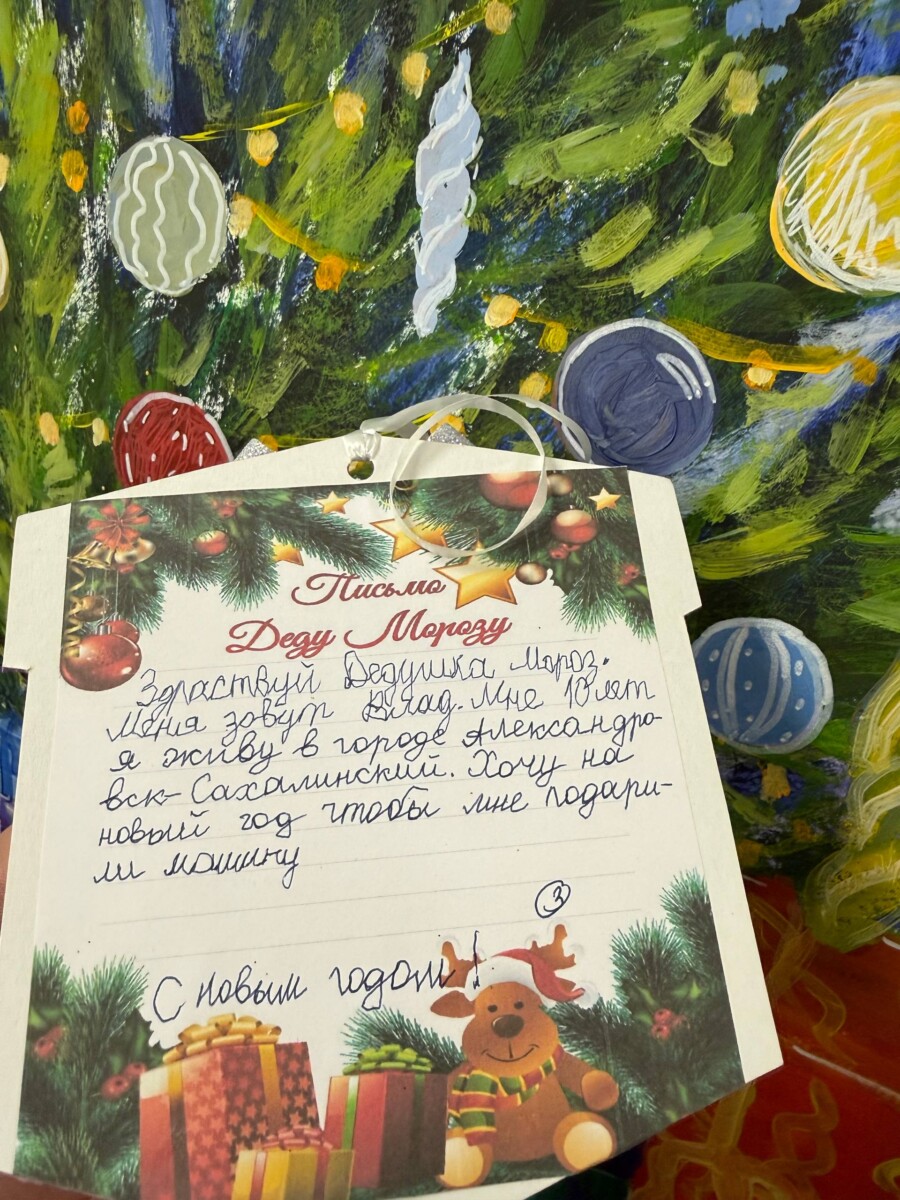 Письмо
Деду Морозу
Здраствуй Дедушка Мороз.
Меня зовут Влад. Мне 10 лет
я живу в городе Александро-
вск-Сахалинский. Хочу на
новый год чтобы мне подари-
ли машину
3
С новым годом!